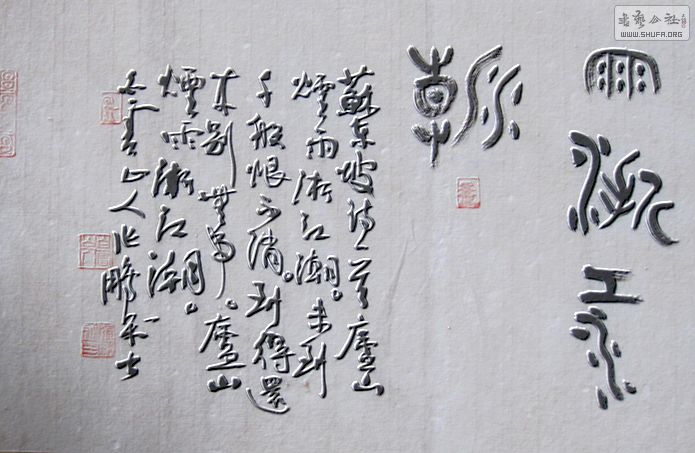 書藝公社
WWW.SHUFA.ORG
雨浙江
潮
蘇東坡詩一首廬山
煙雨浙江潮。未到
千般恨不消。到得還
来别無事。廬山
煙雨浙江潮。
山人